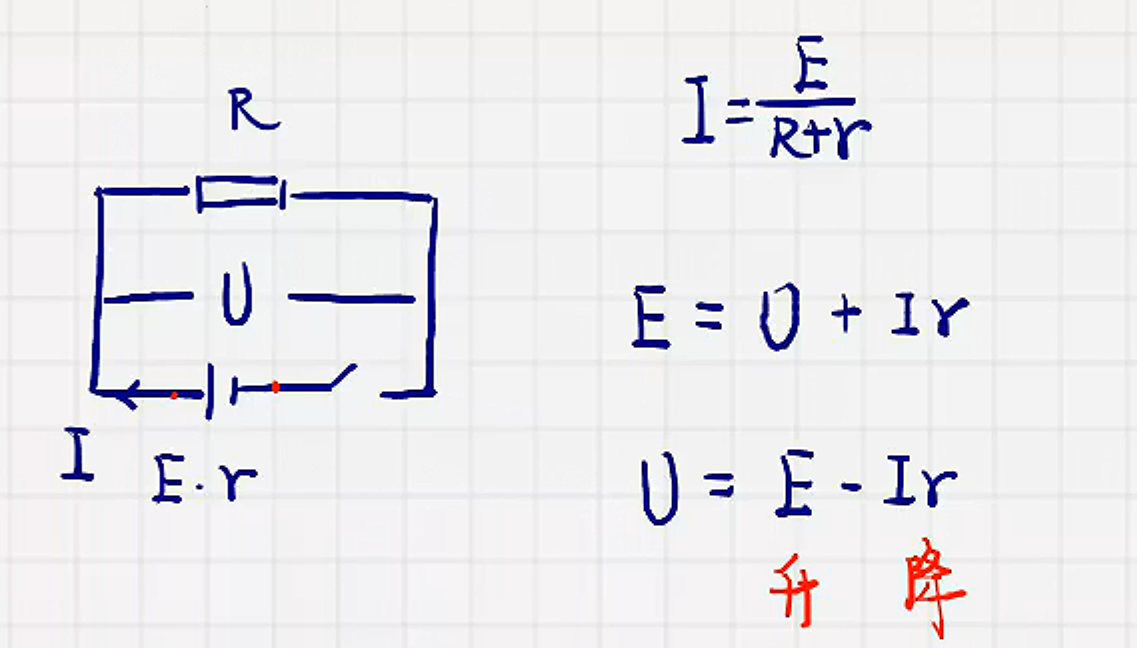 R
U
I
E.r
I=E/(R+r)
E = U + Ir
U = E - Ir
升 降